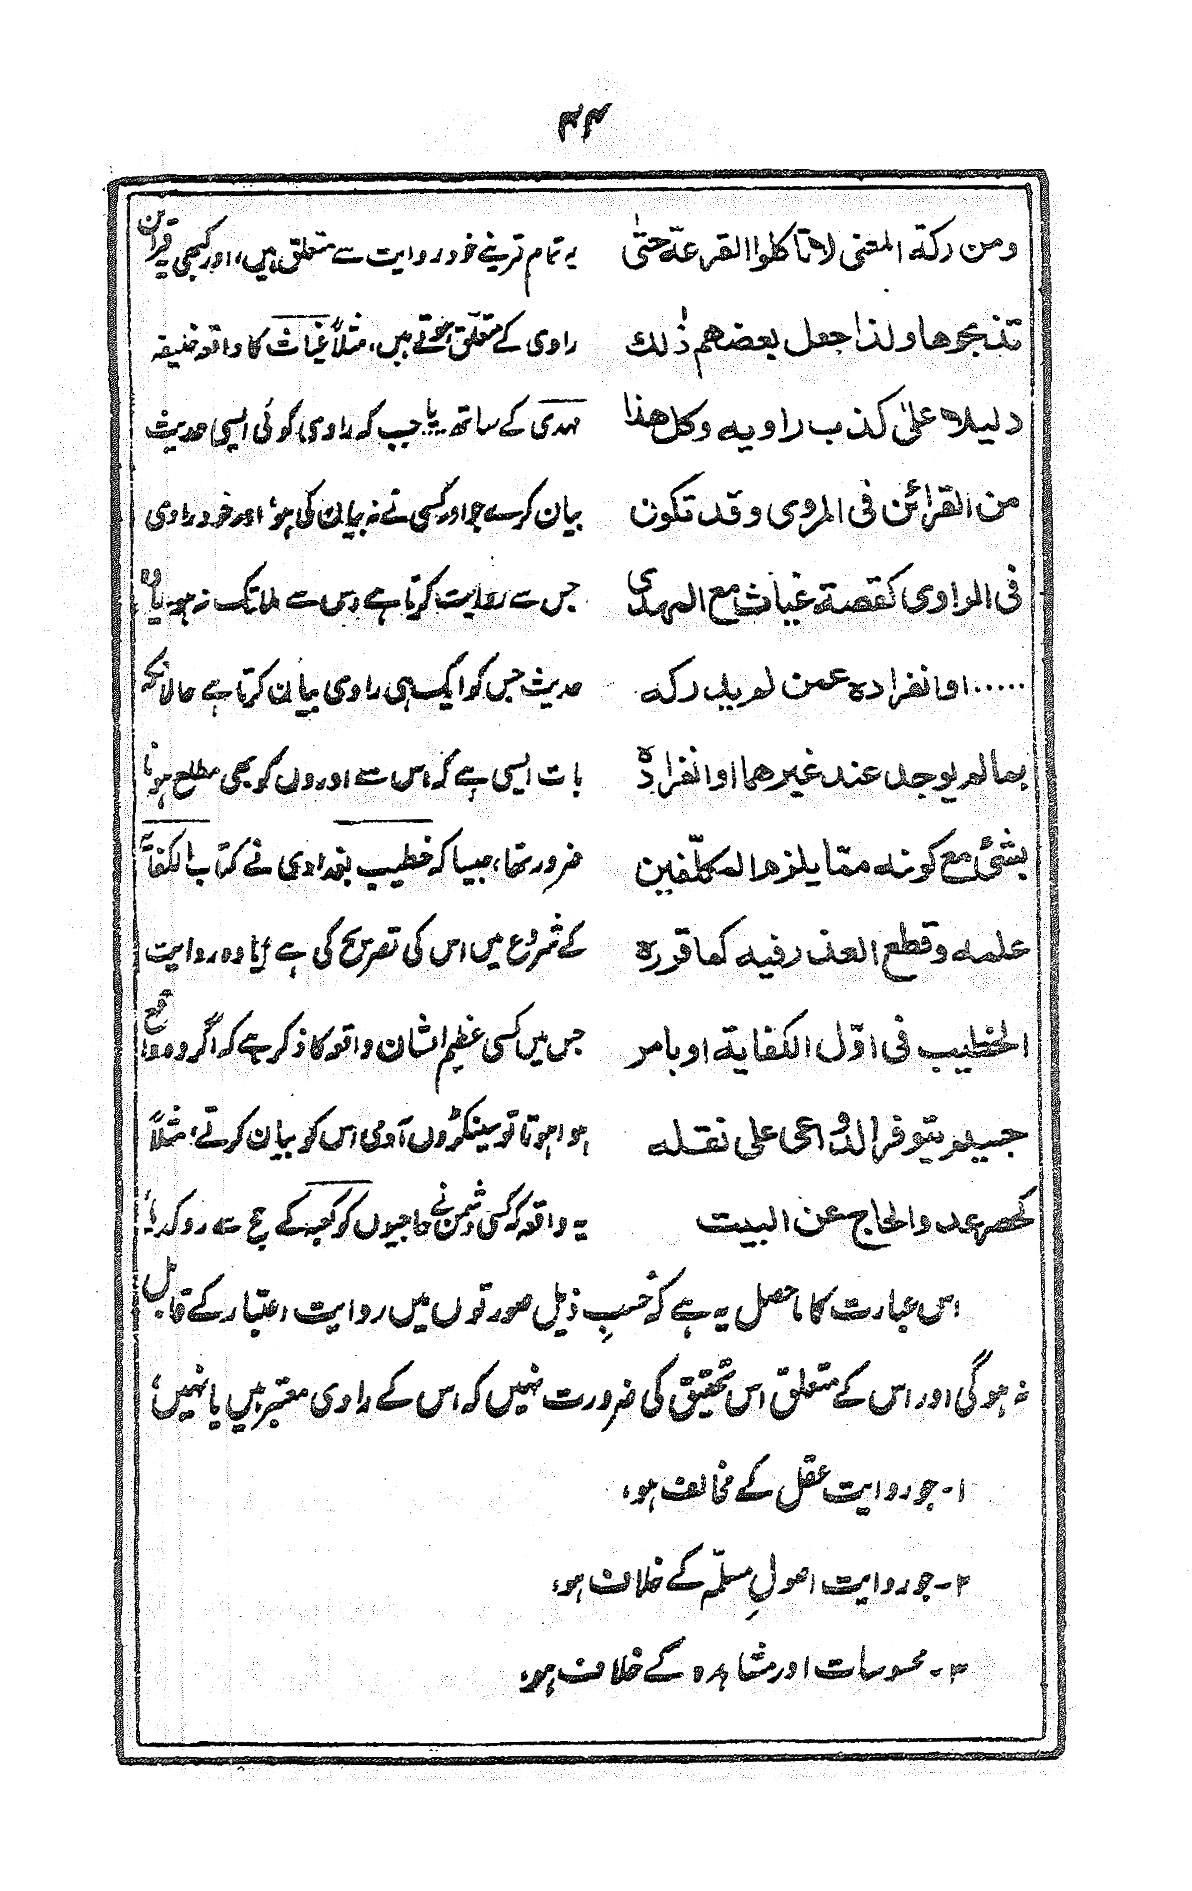 ۴۴
ومن ركة المعنى لا تاكلوا القرعة حتىٰ
تذبحوها ولذا جعل بعضهم ذٰلك
دليلاً علىٰ كذب راويه وكل هذا
من القرائن فى المروى وقد تكون
فى الراوى كقصة غياث مع المهدى
..... او انفراده عمن لم يدركه
بما لم يوجد عند غيرهما او انفراده
بشئ مع كونه ممّا يلزم المكلّفين
علمه وقطع العذر فيه كما قرره
الخطيب فى اوّل الكفاية او بامر
جسيم يتوفر الدواعى على نقله
كحصر عدو الحاج عن البيت
یہ تمام قرینے خود روایت سے متعلق ہیں، اور کبھی یہ قرائن
راوی کے متعلق ہوتے ہیں، مثلاً غیاث کا واقعہ خلیفہ
مہدی کے ساتھ یا جب کہ راوی کوئی ایسی حدیث
بیان کرے جو اور کسی نے نہ بیان کی ہو، اور خود راوی
جس سے روایت کرتا ہے اس سے ملا تک نہ ہو، یا وہ
حدیث جس کو ایک ہی راوی بیان کرتا ہے حالانکہ
بات ایسی ہے کہ اس سے اوروں کو بھی مطلع ہونا
ضرور تھا، جیسا کہ خطیب بغدادی نے کتاب الکفایۃ
کے شروع میں اس کی تصریح کی ہے یا وہ روایت
جس میں کسی عظیم الشان واقعہ کا ذکر ہے کہ اگر وہ واقع
ہوا ہوتا تو سینکڑوں آدمی اس کو بیان کرتے، مثلاً
یہ واقعہ کہ کسی دشمن نے حاجیوں کو کعبہ کے حج سے روکدیا،
اس عبارت کا ماحصل یہ ہے کہ حسبِ ذیل صورتوں میں روایت اعتبار کے قابل
نہ ہوگی اور اس کے متعلق اس تحقیق کی ضرورت نہیں کہ اس کے راوی معتبر ہیں یا نہیں؛
۱۔ جو روایت عقل کے مخالف ہو،
۲۔ جو روایت اصولِ مسلمّہ کے خلاف ہو،
۳۔ محسوسات اور مشاہدہ کے خلاف ہو،